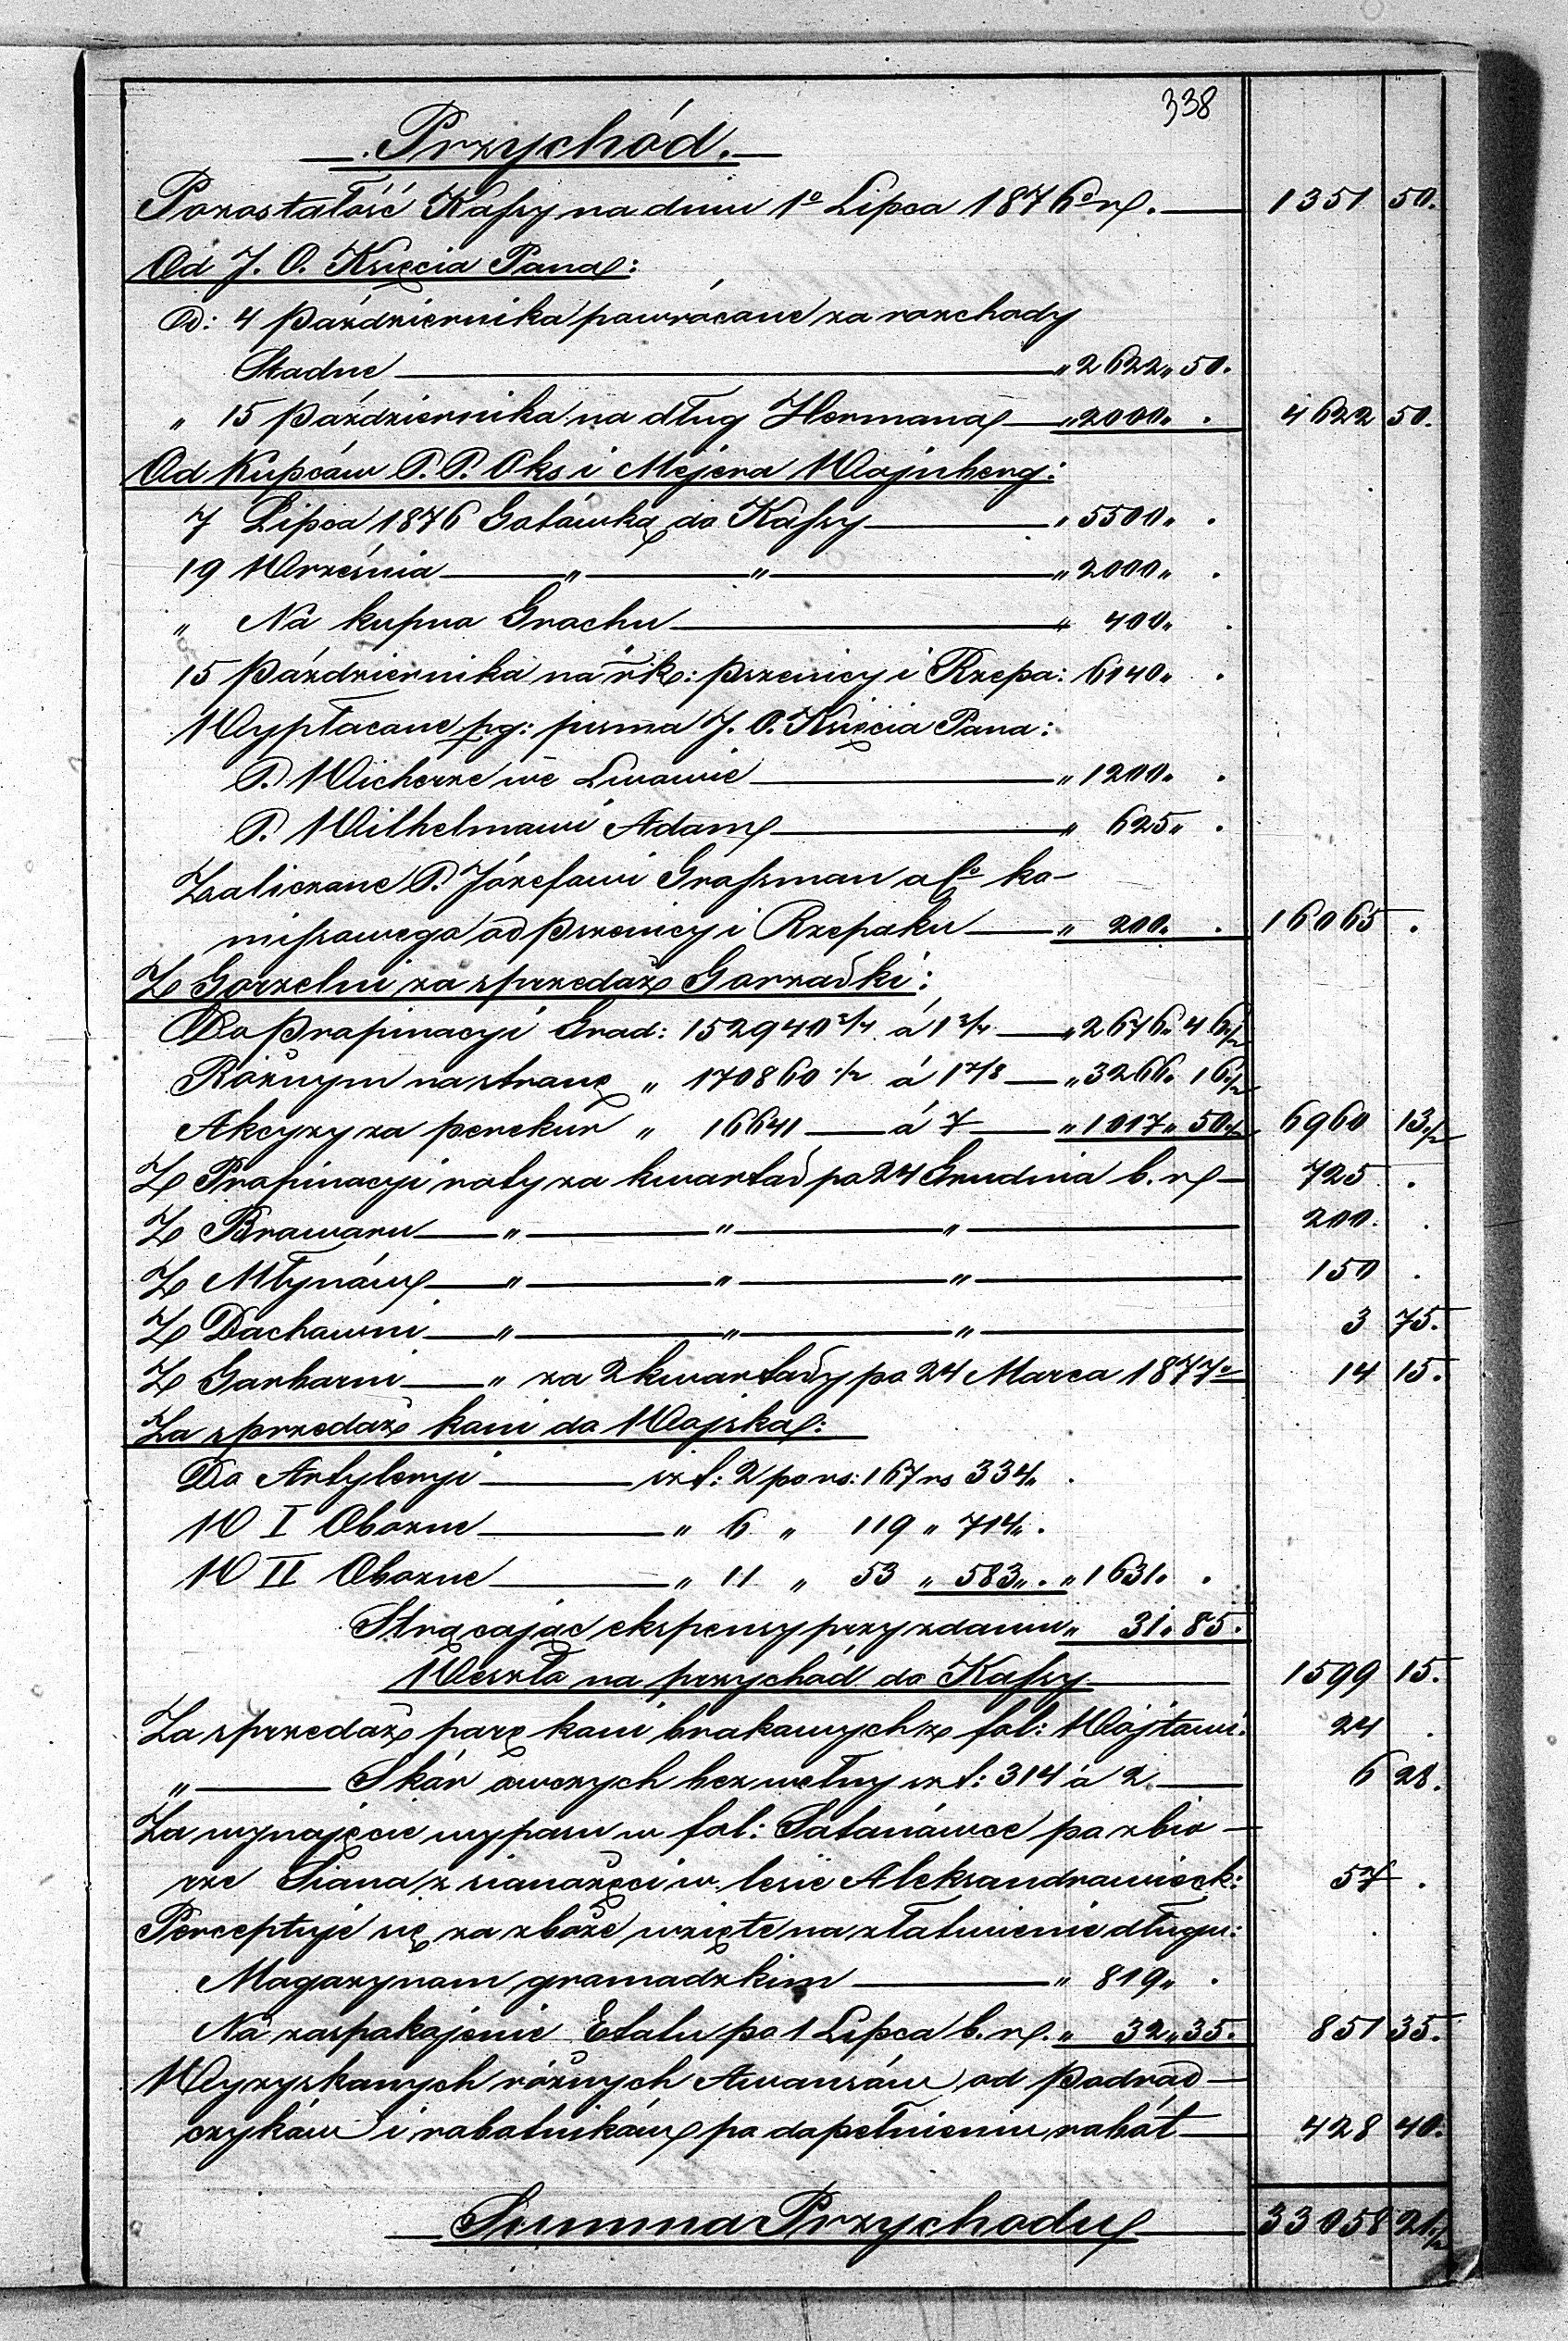 338
Przychód.
Pozostałość Kassy na dniu 1º Lipca 1876º r. 1351 50.
Od J. O. Księcia Pana:
D: 4 Października powrócone za rozchody
Stadne „ 2622 „ 50.
„ 15 Października na dług Hermana „ 2000 „ . 4622 50.
Od Kupców P. P. Oks i Mejera Wajnberg:
7 Lipca 1876 Gotówką do Kassy „ 5500 „ .
19 Września „ „ „ 2000 „ .
„ Na kupno Grochu „ 400 „ .
15 Października na rk: pszenicy i Rzepa: 6140 „ .
Wypłacone pg: pisma J. O. Księcia Pana:
P. Wicherze we Lwowie „ 1200 „ .
P. Wilhelmowi Adam „ 625 „ .
Zaliczone P. Józefowi Grossman a Cº ko-
missowego od Pszenicy i Rzepaku „ 200 „ . 16065 .
Z Gorzelni za sprzedaż Gorzałki:
Do Propinacyi Grad: 152940 3/4 á 1 3/4 „ 2676 „ 46 1/2
Różnym na stronę „ 170860 1/2 á 1 7/8 „ 3266 „ 16 1/2
Akcyzy za perekur „ 16641 á 7 „ 1017 „ 50 1/2 6960 13 1/2
Z Propinacyi raty za kwartał po 24 Grudnia b. r. 725 .
Z Browaru „ „ „ 200 .
Z Młynów „ „ „ 150 .
Z Dachowni „ „ „ 3 75.
Z Garbarni „ za 2 kwartały po 24 Marca 1877º 14 15.
Za sprzedaż koni do Wojska:
Do Artyleryi szt: 2 po rs: 167 rs 334 „ .
W I Obozne „ 6 „ 119 „ 714 „ .
W II Obozne „ 11 „ 53 „ 583 „ . „ 1631 „ .
Strącając ekspensy przy zdaniu „ 31 „ 85.
Weszło na przychód do Kassy 1599 15.
Za sprzedaż parę koni brakowych z fol: Wójtowi: 24 .
„ Skór owczych bez wełny szt: 314 á 2 6 28.
Za wynajęcie wypasu w fol: Satanówce po zbio-
rze Siana z sianożęci w lesie Aleksandrowieck: 57 .
Perceptuje się za zboże wzięte na załatwienie długu: .
Magazynam gromadzkim „ 819 „ .
Na zaspokojenie Etatu po 1 Lipca b. r. „ 32 „ 35. 851 35.
Wyzyskanych różnych Awansów od Podrad-
czyków i robotników po dopełnieniu robót 428 40.
Summa Przychodu 33058 21 1/2